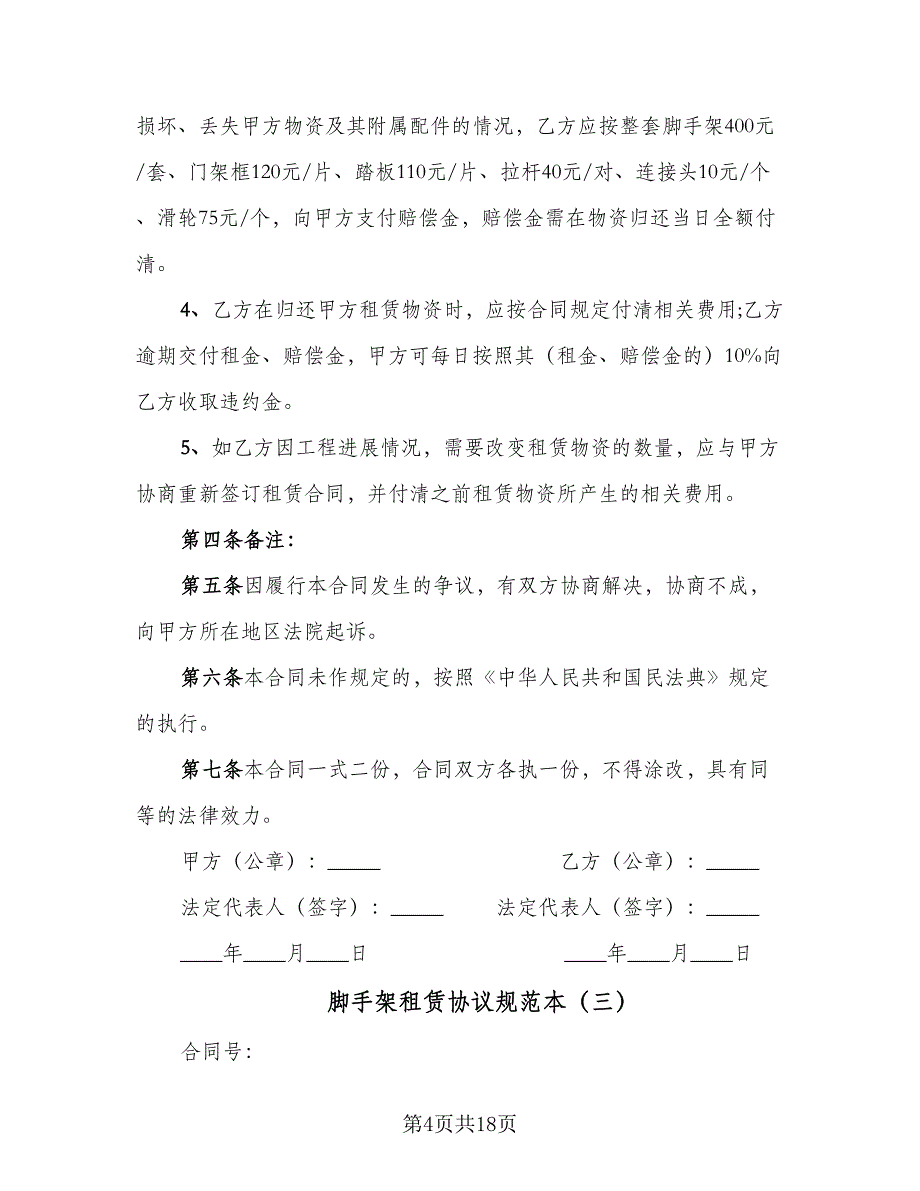 损坏、丢失甲方物资及其附属配件的情况，乙方应按整套脚手架400元
/套、门架框120元/片、踏板110元/片、拉杆40元/对、连接头10元/个
、滑轮75元/个，向甲方支付赔偿金，赔偿金需在物资归还当日全额付
清。
4、乙方在归还甲方租赁物资时，应按合同规定付清相关费用;乙方
逾期交付租金、赔偿金，甲方可每日按照其（租金、赔偿金的）10%向
乙方收取违约金。
5、如乙方因工程进展情况，需要改变租赁物资的数量，应与甲方
协商重新签订租赁合同，并付清之前租赁物资所产生的相关费用。
第四条备注：
第五条因履行本合同发生的争议，有双方协商解决，协商不成，
向甲方所在地区法院起诉。
第六条本合同未作规定的，按照《中华人民共和国民法典》规定
的执行。
第七条本合同一式二份，合同双方各执一份，不得涂改，具有同
等的法律效力。
甲方（公章）：_____ 乙方（公章）：_____
法定代表人（签字）：_____ 法定代表人（签字）：_____
____年____月____日 ____年____月____日
脚手架租赁协议规范本（三）
合同号：
第4页共18页